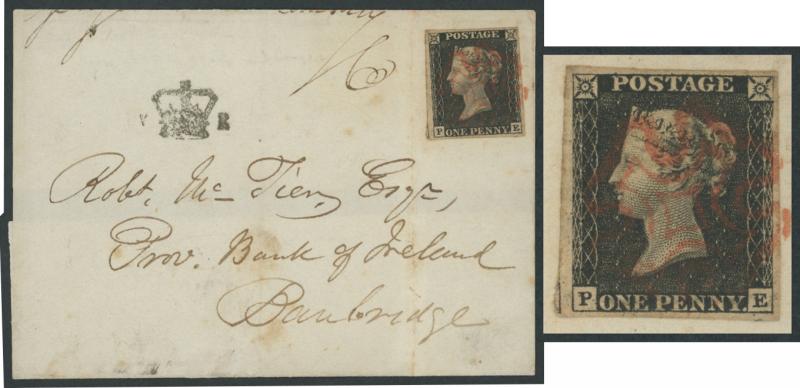 POSTAGE
P ONE PENNY. E
V R
Robt. Mc Tier, Esqr,
Prov. Bank of Ireland
Banbridge
POSTAGE
P ONE PENNY. E